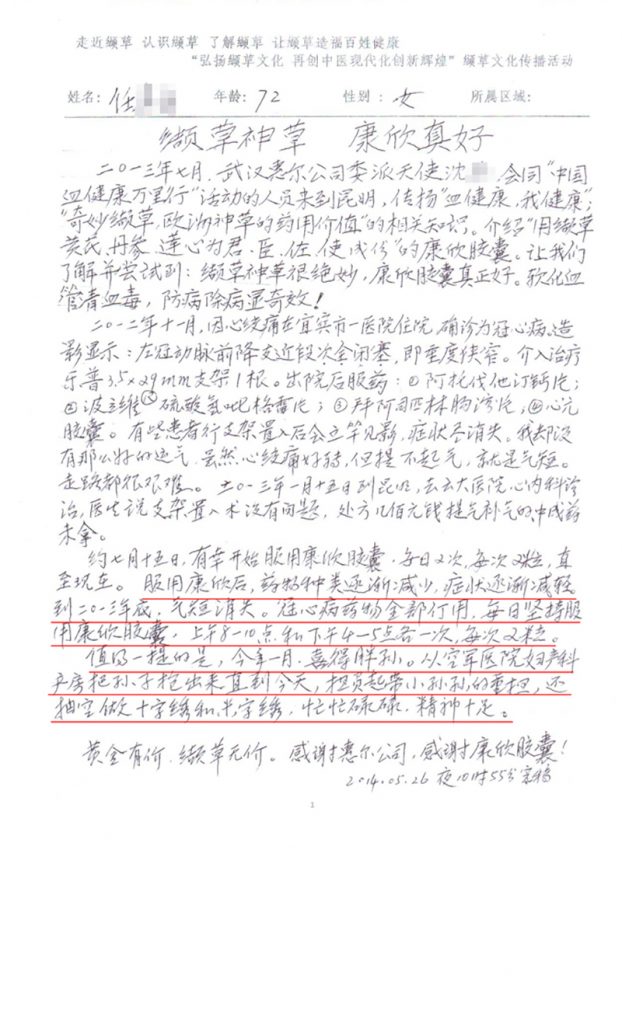 走近缬草 认识缬草 了解缬草 让缬草造福百姓健康
“弘扬缬草文化 再创中医现代化创新辉煌” 缬草文化传播活动
姓名：任 年龄：72 性别：女 所居区域：
缬草神草 康欣真好
二〇一三年七月，武汉惠尔公司委派天使沈 会同“中国
血健康万里行”活动的人员来到昆明，传扬“血健康，我健康”；
“奇妙缬草，欧洲神草的药用价值”的相关知识。介绍“用缬草
黄芪、丹参、莲心为君、臣、佐、使成份”的康欣胶囊。让我们
了解并尝试到：缬草神草很绝妙，康欣胶囊真正好。软化血
管清血毒，防病除病显奇效！
二〇一二年十一月，因心绞痛在宜宾市一医院住院，确诊为冠心病。造
影显示：左冠动脉前降支近段次全闭塞，即重度狭窄。介入治疗
乐普3.5×29mm支架1根。出院后服药：①阿托伐他汀钙片；
②波立维 硫酸氢吡格雷片；③拜阿司匹林肠溶片；④心元
胶囊。有些患者行支架置入后会立竿见影，症状尽消失。我却没
有那么好的运气，虽然心绞痛好转，但提不起气，就是气短。
走路都很艰难。二〇一三年一月十五日到昆明，去云大医院心内科诊
治，医生说支架置入术没有问题，处方几佰元钱提气补气的中成药
未拿。
约七月十五日，有幸开始服用康欣胶囊，每日2次，每次2粒，直
至现在。服用康欣后，药物种类逐渐减少，症状逐渐减轻
到二〇一三年底，气短消失。冠心病药物全部停用，每日坚持服
用康欣胶囊，上午8-10点和下午4-5点各一次，每次2粒。
值得一提的是，今年一月，喜得胖孙。从空军医院妇产科
产房把孙子抱出来直到今天，担负起带小孙孙的重担，还
抽空做十字绣和 字绣，忙忙碌碌，精神十足。
黄金有价，缬草无价。感谢惠尔公司，感谢康欣胶囊！
2014.05.26 夜10时55分完稿
1